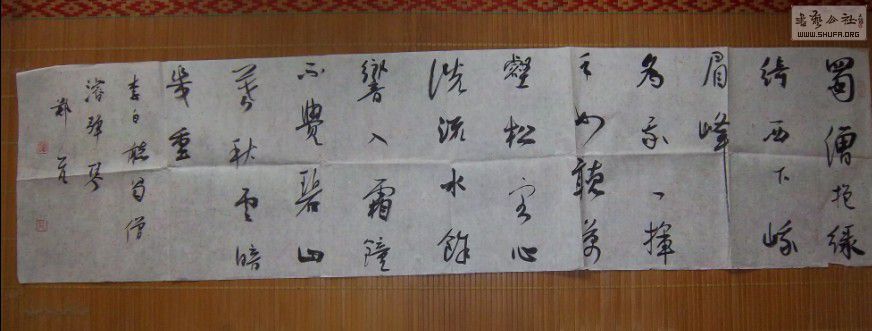 蜀僧抱綠
綺西下峨
眉峰
為我一揮
手如聽萬
壑松客心
洗流水餘
響入霜鐘
不覺碧山
暮秋雲暗
幾重
李白聽蜀僧
濬彈琴
书艺公社
WWW.SHUFA.ORG